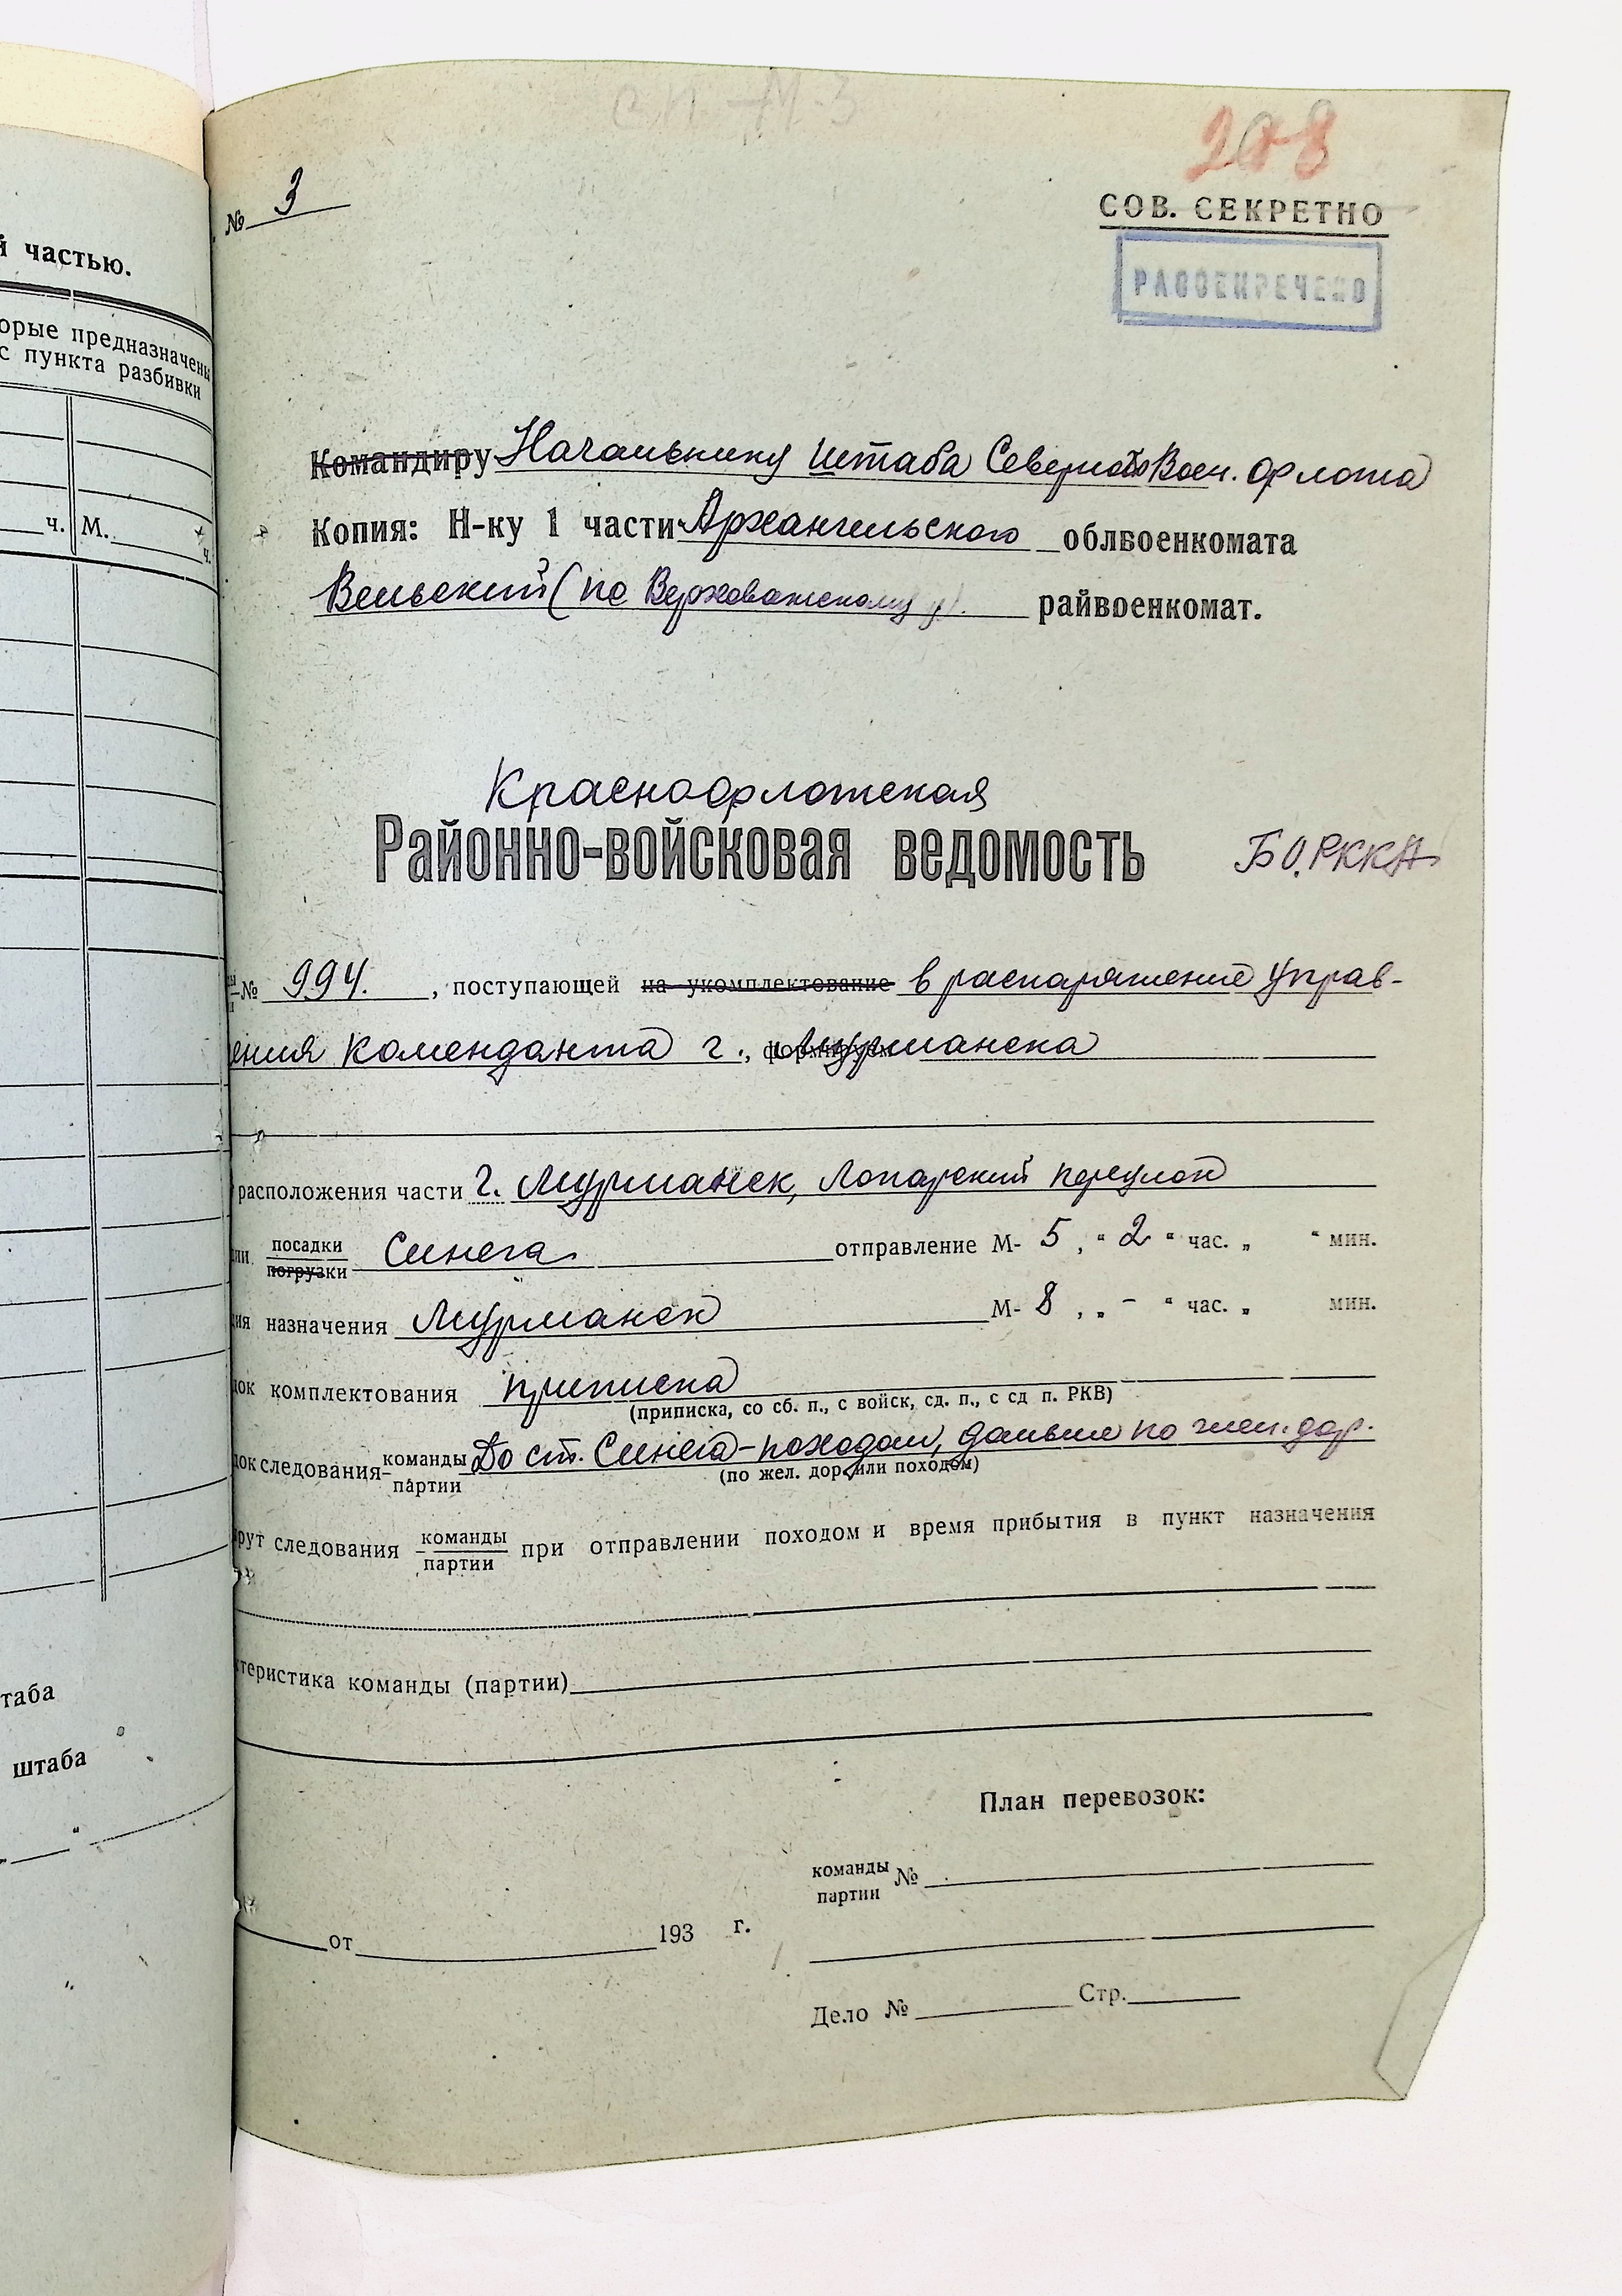 й частью.
орые предназначены
с пункта разбивки
ч. М. ч.
таба
штаба
сп-М-3
208
№ 3
СОВ. СЕКРЕТНО
РАССЕКРЕЧЕНО
Командиру Начальнику штаба Северного Воен. флота
Копия: Н-ку 1 части Архангельского облвоенкомата
Вельский (по Верховажскому р). райвоенкомат.
Краснофлотская
Районно-войсковая ведомость БО.РККА
№ 994. , поступающей на укомплектование в распоряжение Управ-
ения коменданта г., формируем Мурманска
расположения части г. Мурманск, Лопарский переулок
ии посадки погрузки Синега отправление М- 5, „ 2 “ час. „ “ мин.
ия назначения Мурманск М- 8, „ - “ час. „ мин.
док комплектования приписка
(приписка, со сб. п., с войск, сд. п., с сд п. РКВ)
док следования команды партии До ст. Синега - походом, дальше по жел. дор.
(по жел. дор. или походом)
рут следования команды партии при отправлении походом и время прибытия в пункт назначения
ктеристика команды (партии)
План перевозок:
команды партии №
от 193 г.
Дело № Стр.